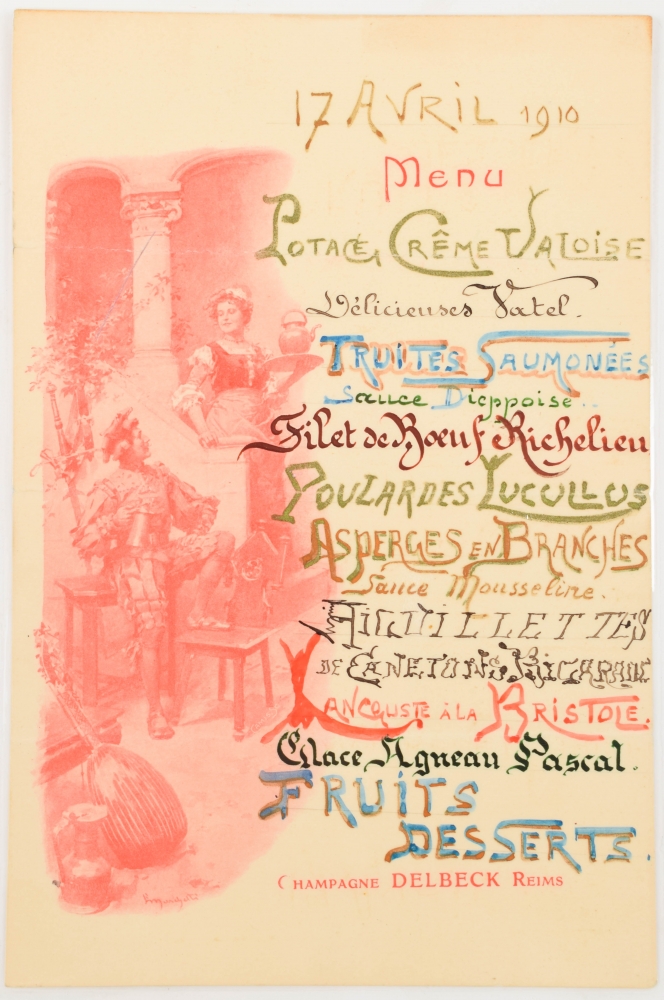 17 AVRIL 1910
Menu
POTAGE, CRÊME VALOISE
Délicieuses Vatel.
TRUITES SAUMONÉES
Sauce Dieppoise..
Filet de Bœuf Richelieu
POULARDES LUCULLUS
ASPERGES EN BRANCHES
Sauce Mousseline.
AIGUILLETTES
DE CANETONS
LANGOUSTE À LA BRISTOLE.
Glace Agneau Pascal.
FRUITS
DESSERTS.
CHAMPAGNE DELBECK REIMS